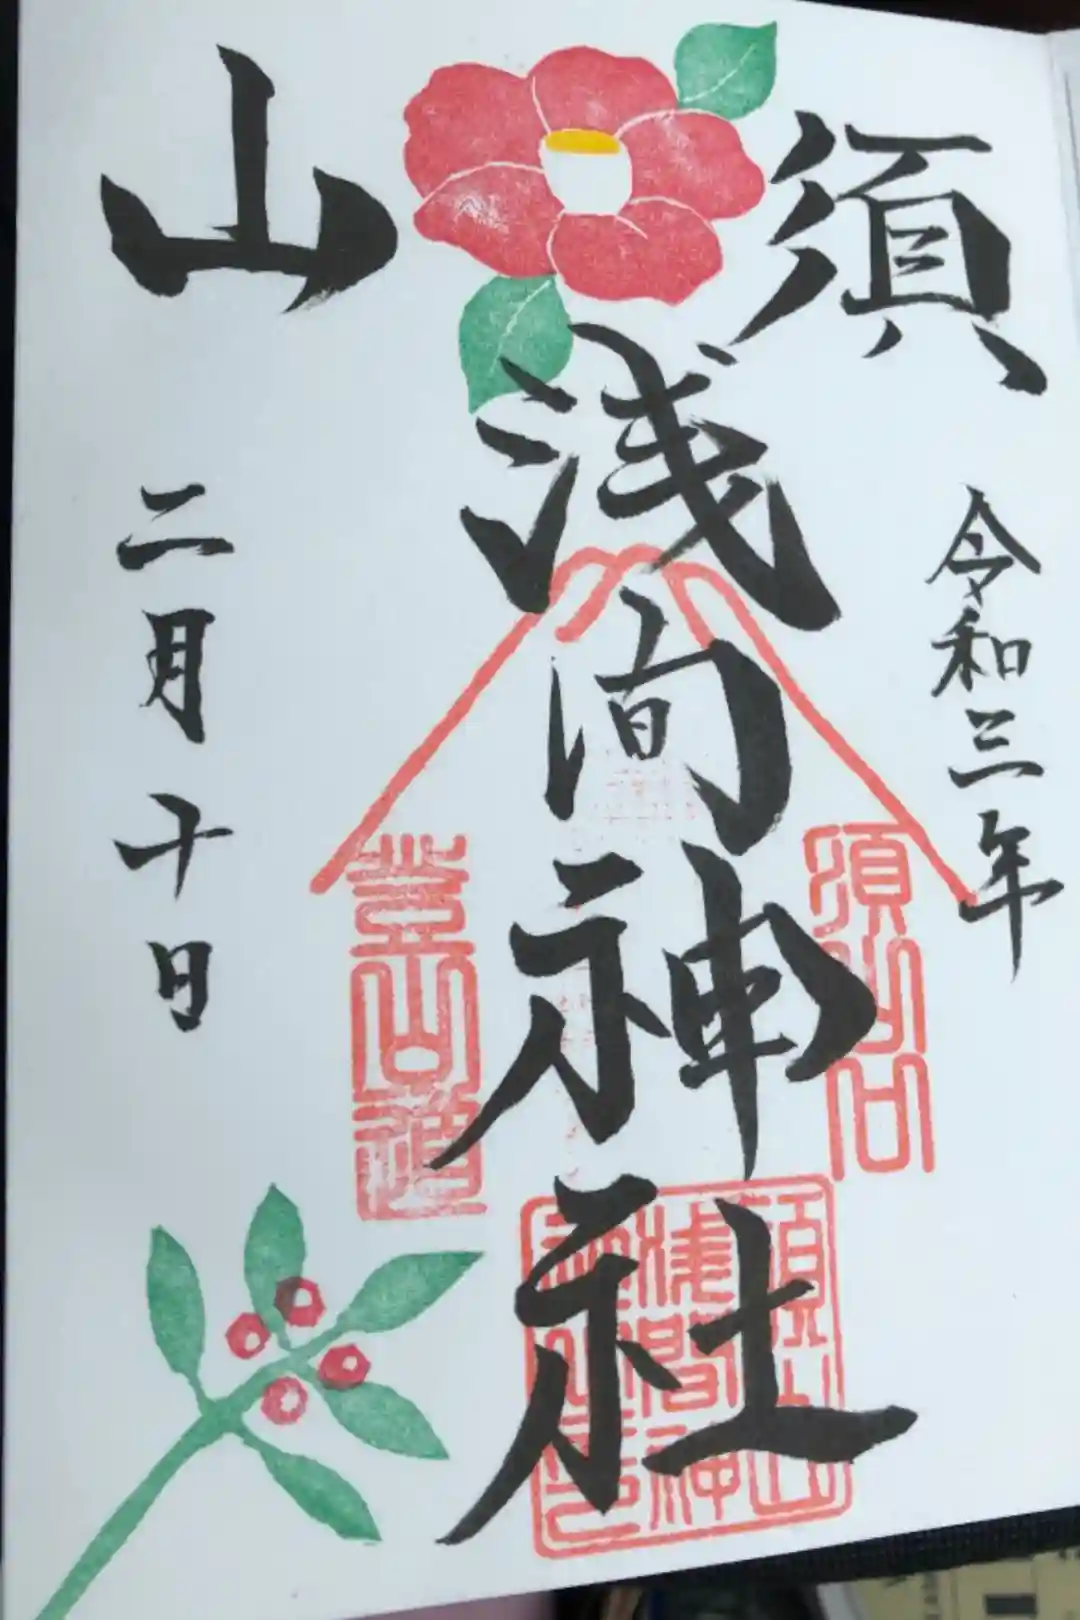 須山
浅間神社
令和三年
二月十日
須山口
登山道
須山浅間神社